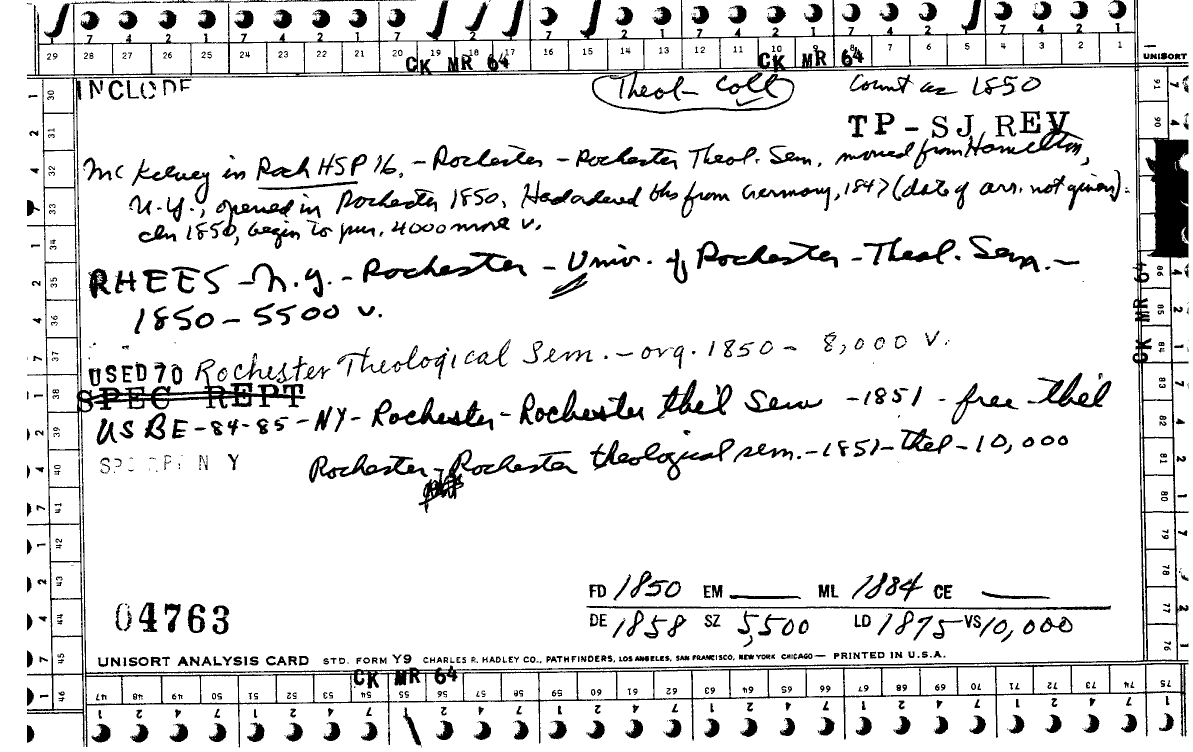 7 4 2 1 7 4 2 1 7 4 2 1 7 4 2 1 7 4 2 1 7 4 2 1 7 4 2 1
29 28 27 26 25 24 23 22 21 20 19 18 17 16 15 14 13 12 11 10 9 8 7 6 5 4 3 2 1
CK MR 64 CK MR 64 UNISORT
INCLUDE Theol- Coll Count as 1850
TP-SJ REV
McKelvey in Roch HSP 16, - Rochester - Rochester Theol. Sem. moved from Hamilton,
N.Y., opened in Rochester 1850, Had ordered bks from Germany, 1847 (date of arr. not given).
1850, begin to pur. 4000 more v.
RHEES - N.Y. - Rochester - Univ. of Rochester - Theol. Sem. -
1850 - 5500 v.
USED 70 Rochester Theological Sem. - org. 1850 - 8,000 v.
SPEC REPT
US BE - 84-85 - NY - Rochester - Rochester the'l Sem - 1851 - free - the'l
N Y Rochester - Rochester theological sem. - 1851 - thel - 10,000
FD 1850 EM ML 1884 CE
04763
DE 1858 SZ 5,500 LD 1875 VS 10,000
UNISORT ANALYSIS CARD STD. FORM Y9 CHARLES R. HADLEY CO., PATHFINDERS, LOS ANGELES, SAN FRANCISCO, NEW YORK CHICAGO — PRINTED IN U.S.A.
CK MR 64
47 48 49 50 51 52 53 54 55 56 57 58 59 60 61 62 63 64 65 66 67 68 69 70 71 72 73 74 75
1 2 4 7 1 2 4 7 1 2 4 7 1 2 4 7 1 2 4 7 1 2 4 7 1 2 4 7
30 31 32 33 34 35 36 37 38 39 40 41 42 43 44 45 46
91 90 86 85 84 83 82 81 80 79 78 77 76
CK MR 64